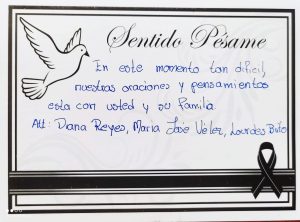 Sentido Pésame
En este momento tan difícil,
nuestras oraciones y pensamientos
esta con usted y su familia
Att: Diana Reyes, Maria José Vélez, Lourdes Brito